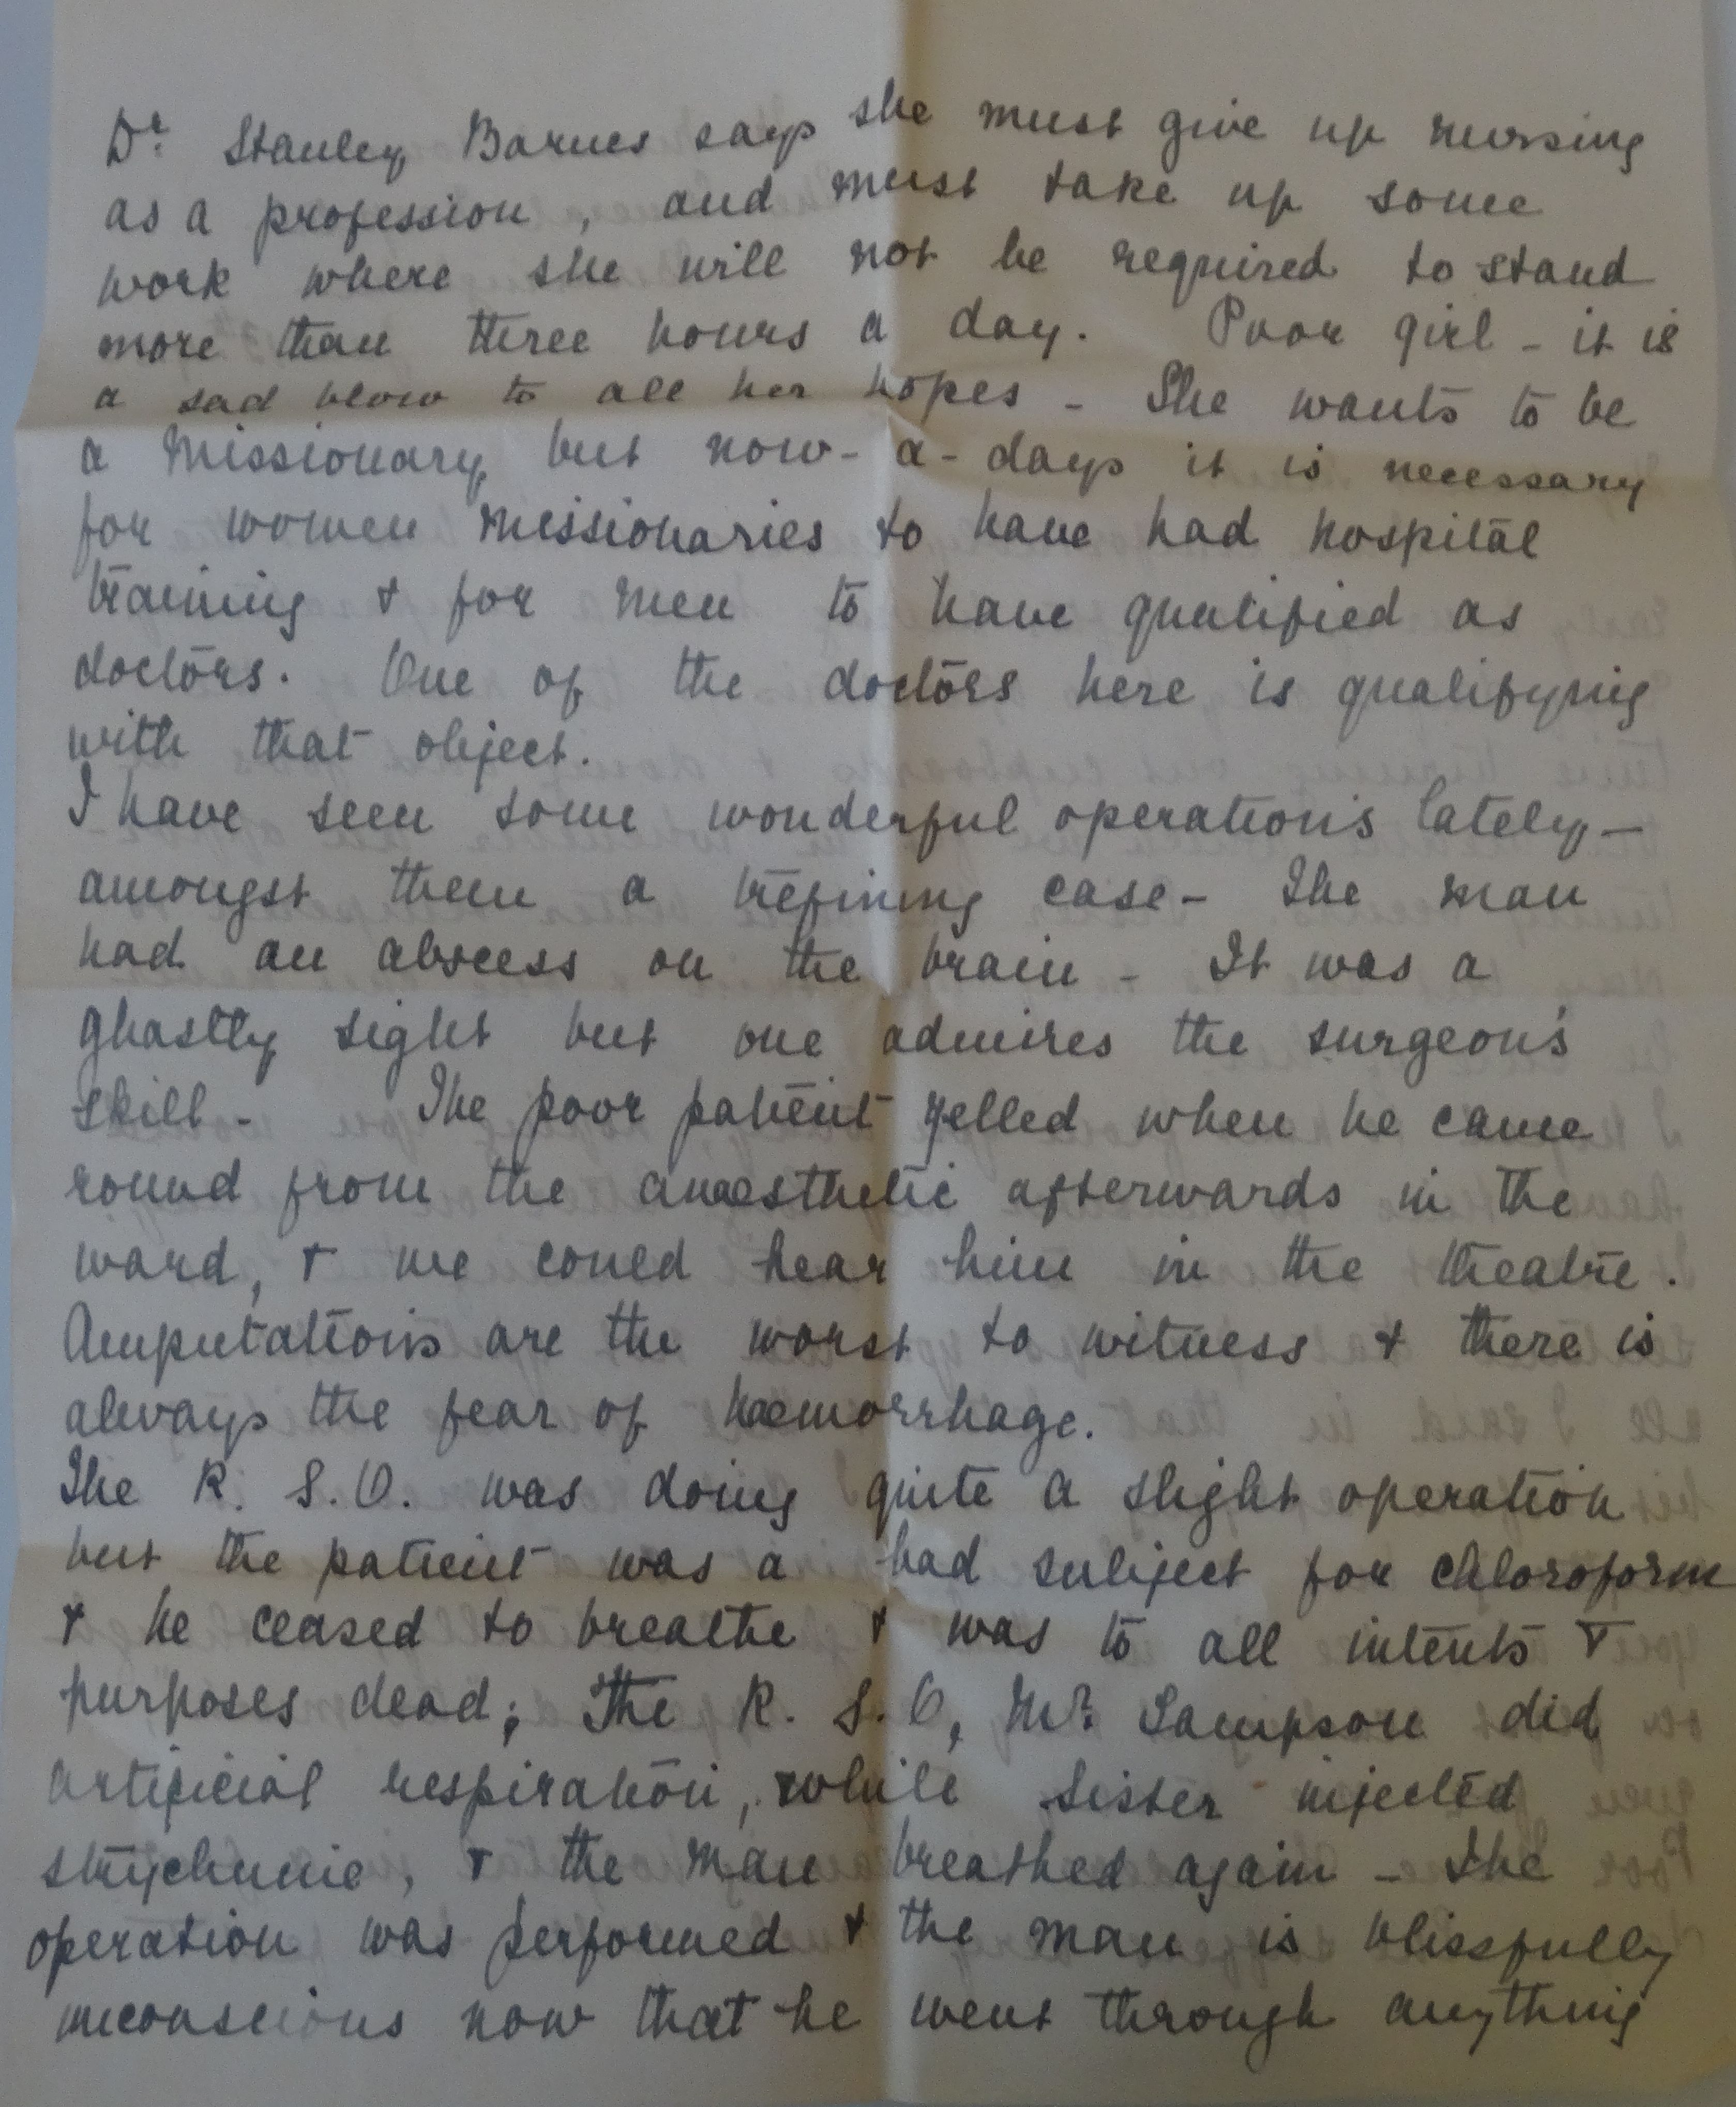 Dr. Stanley Barnes says she must give up nursing
as a profession, and must take up some
work where she will not be required to stand
more than three hours a day. Poor girl - it is
a sad blow to all her hopes - She wants to be
a missionary, but now-a-days it is necessary
for women missionaries to have had hospital
training & for men to have qualified as
doctors. One of the doctors here is qualifying
with that object.
I have seen some wonderful operations lately -
amongst them a trefining case - The man
had an abscess on the brain - It was a
ghastly sight but one admires the surgeon's
skill - The poor patient yelled when he came
round from the anaesthetic afterwards in the
ward, & we could hear him in the theatre.
Amputations are the worst to witness & there is
always the fear of haemorrhage.
The R. S. O. was doing quite a slight operation
but the patient was a bad subject for chloroform
& he ceased to breathe & was to all intents &
purposes dead; The R. S. O, Mr. Sampson did
artificial respiration, while Sister injected
strychnine, & the man breathed again - The
operation was performed & the man is blissfully
unconscious now that he went through anything